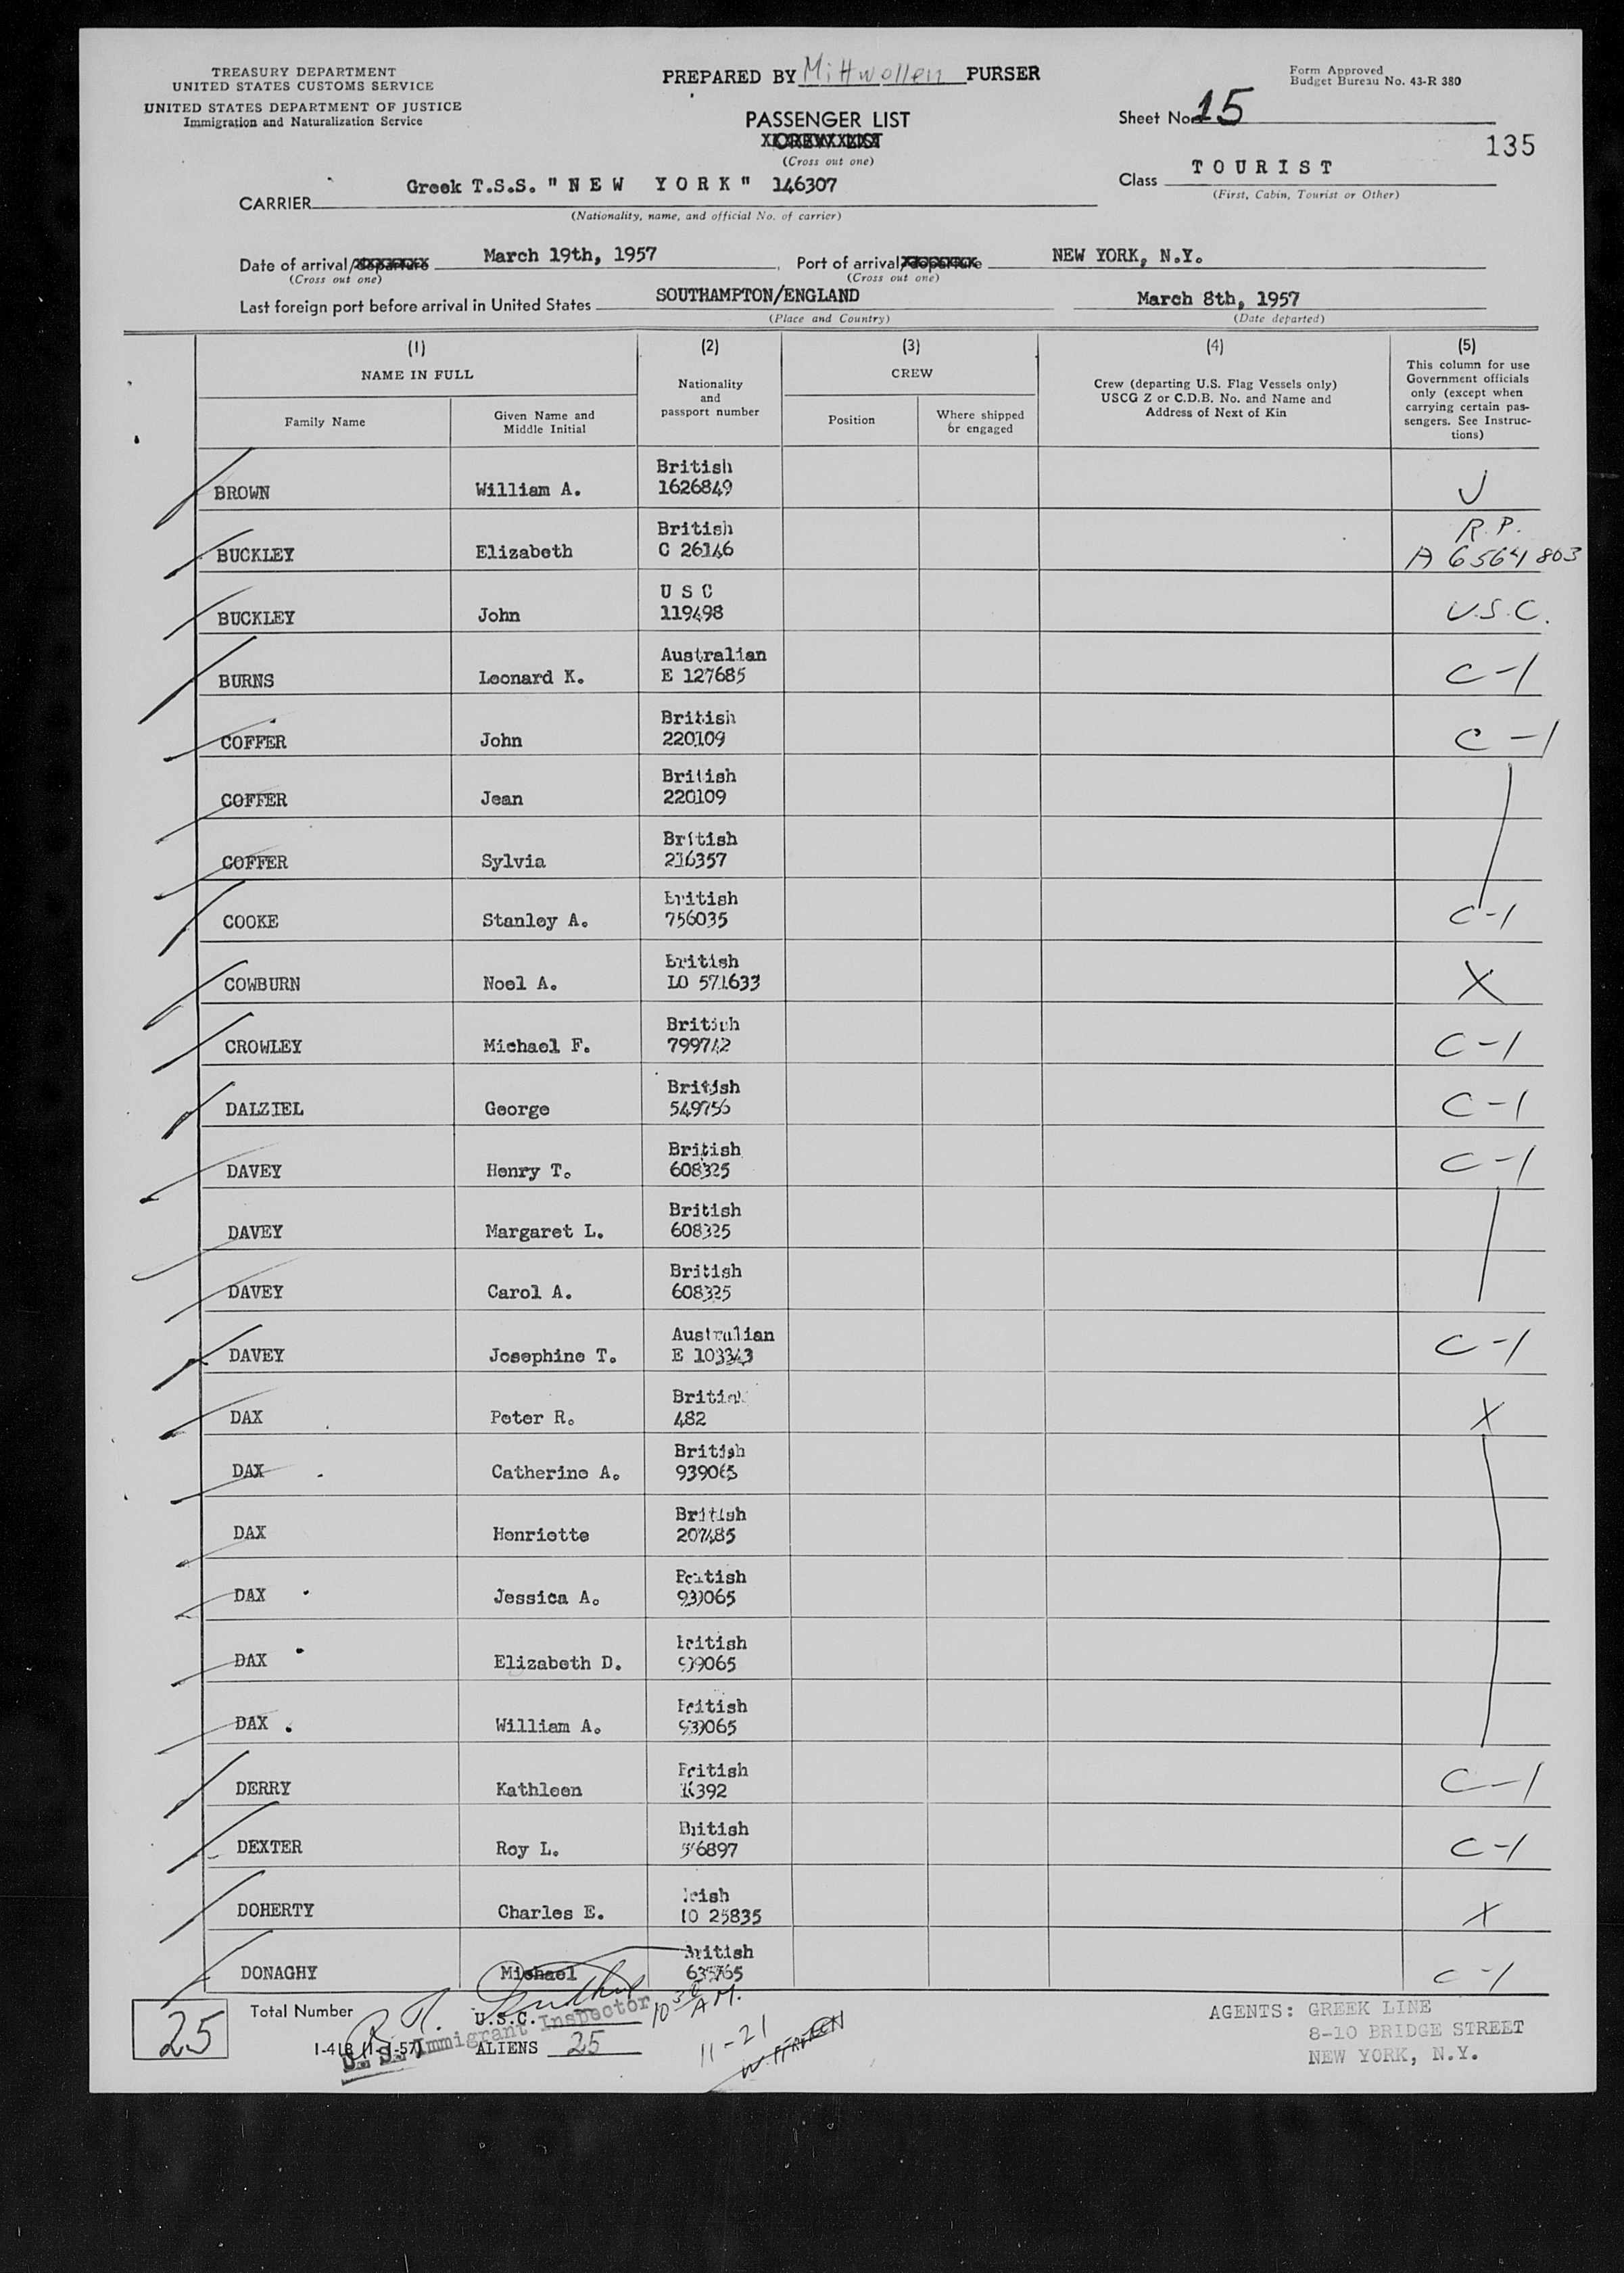 TREASURY DEPARTMENT
UNITED STATES CUSTOMS SERVICE
UNITED STATES DEPARTMENT OF JUSTICE
Immigration and Naturalization Service
PREPARED BY Mittwollen PURSER
Form Approved
Budget Bureau No. 43-R 380
PASSENGER LIST
CREW LIST
(Cross out one)
Sheet No. 15
135
Class TOURIST
(First, Cabin, Tourist or Other)
CARRIER Greek T.S.S. "NEW YORK" 146307
(Nationality, name, and official No. of carrier)
Date of arrival/departure March 19th, 1957 Port of arrival/departure NEW YORK, N.Y.
(Cross out one) (Cross out one)
Last foreign port before arrival in United States SOUTHAMPTON/ENGLAND March 8th, 1957
(Place and Country) (Date departed)
(1) NAME IN FULL
Family Name
Given Name and Middle Initial
(2) Nationality and passport number
(3) CREW
Position
Where shipped or engaged
(4) Crew (departing U.S. Flag Vessels only) USCG Z or C.D.B. No. and Name and Address of Next of Kin
(5) This column for use Government officials only (except when carrying certain passengers. See Instructions)
BROWN William A. British 1626849
BUCKLEY Elizabeth British C 26146 R.P. A 6564803
BUCKLEY John U S C 119498 U.S.C.
BURNS Leonard K. Australian E 127685 C-1
COFFER John British 220109 C-1
COFFER Jean British 220109
COFFER Sylvia British 216357
COOKE Stanley A. British 756035 C-1
COWBURN Noel A. British LO 571633 X
CROWLEY Michael F. British 799742 C-1
DALZIEL George British 549756 C-1
DAVEY Henry T. British 608325 C-1
DAVEY Margaret L. British 608325
DAVEY Carol A. British 608325
DAVEY Josephine T. Australian E 103343 C-1
DAX Peter R. British 482 X
DAX Catherine A. British 939065
DAX Henriette British 207485
DAX Jessica A. British 939065
DAX Elizabeth D. British 939065
DAX William A. British 939065
DERRY Kathleen British C-1
DEXTER Roy L. British C-1
DOHERTY Charles E. Irish IO 25835 X
DONAGHY Michael British C-1
25
Total Number
U.S.C.
I-418 (1-1-57)
ALIENS 25
U. S. Immigrant Inspector
10 30 A.M.
11-21
AGENTS: GREEK LINE
8-10 BRIDGE STREET
NEW YORK, N.Y.